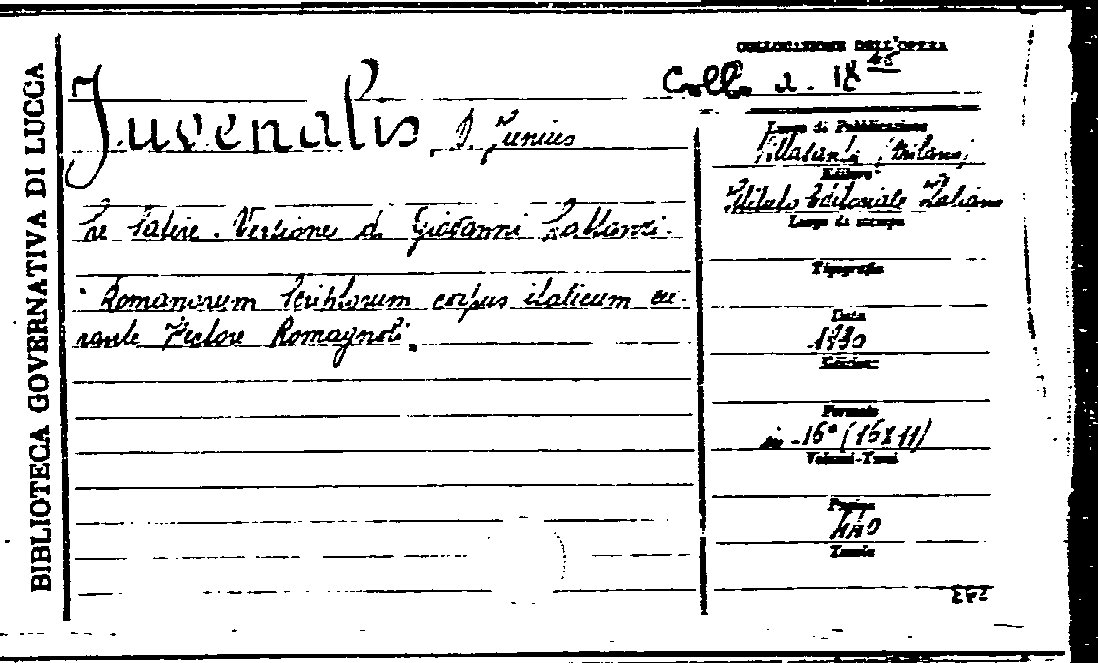 BIBLIOTECA GOVERNATIVA DI LUCCA
COLLOCAZIONE DELL'OPERA
Coll. 2. IX 45
Juvenalis, D. Junius
Le Satire. Versione di Giovanni Lattanzi.
Romanorum Scriptorum corpus italicum cu-
rante Hectore Romagnoli.
Luogo di Pubblicazione
(Milano)
Editore
Istituto Editoriale Italiano
Luogo di stampa
Tipografia
Data
1930
Formato
in-16° (16x11)
Volumi-Tomi
Pagine
Tavole